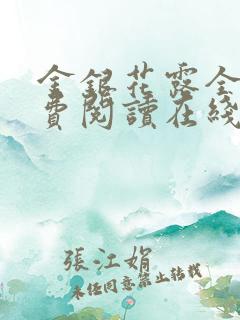 金銀花露全
費閱讀在綫
張江娟
未经同意禁止转载